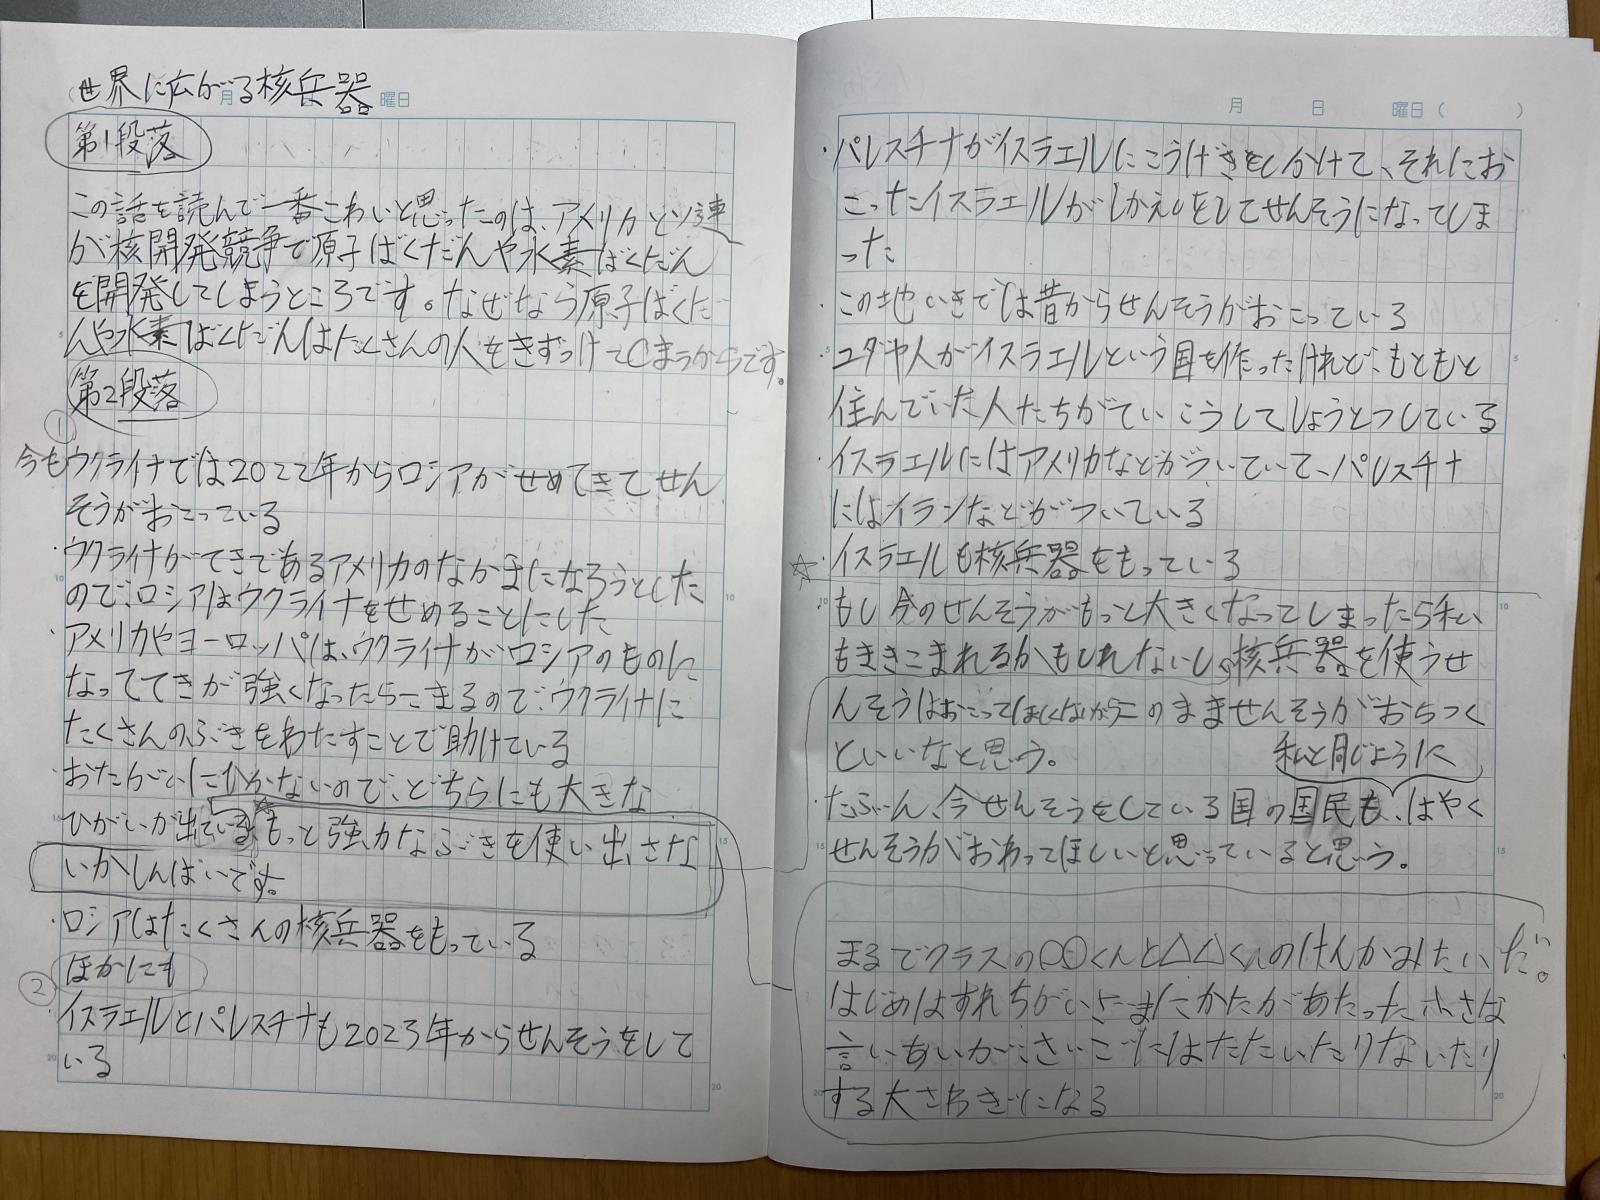 世界に広がる核兵器
月 曜日
第1段落
この話を読んで一番こわいと思ったのは、アメリカとソ連
が核開発競争で原子ばくだんや水素ばくだん
を開発してしまうところです。なぜなら原子ばくだ
んや水素ばくだんはたくさんの人をきずつけてしまうからです。
第2段落
①
今もウクライナでは2022年からロシアがせめてきてせん
そうがおこっている
・ウクライナがてきであるアメリカのなかまになろうとした
ので、ロシアはウクライナをせめることにした
・アメリカやヨーロッパは、ウクライナがロシアのものに
なっててきが強くなったらこまるので、ウクライナに
たくさんのぶきをわたすことで助けている
・おたがいにひかないので、どちらにも大きな
ひがいが出ている。☆もっと強力なぶきを使い出さな
いかしんぱいです。
・ロシアはたくさんの核兵器をもっている
② ほかにも
イスラエルとパレスチナも2023年からせんそうをして
いる
月 日 曜日( )
・パレスチナがイスラエルにこうげきをしかけて、それにお
こったイスラエルがしかえしをしてせんそうになってしま
った
・この地いきでは昔からせんそうがおこっている
・ユダヤ人がイスラエルという国を作ったけれど、もともと
住んでいた人たちがていこうしてしょうとつしている
・イスラエルにはアメリカなどがついていて、パレスチナ
にはイランなどがついている
☆・イスラエルも核兵器をもっている
・もし今のせんそうがもっと大きくなってしまったら私い
もまきこまれるかもしれないし。核兵器を使うせ
んそうはおこってほしくないからこのまませんそうがおちつく
といいなと思う。
私と同じように
・たぶん、今せんそうをしている国の国民も、はやく
せんそうがおわってほしいと思っていると思う。
まるでクラスの〇〇くんと△△くんのけんかみたいだ。
はじめはすれちがいざまにかたがあたった小さな
言いあいが、さいごにはたたいたりないたり
する大さわぎになる